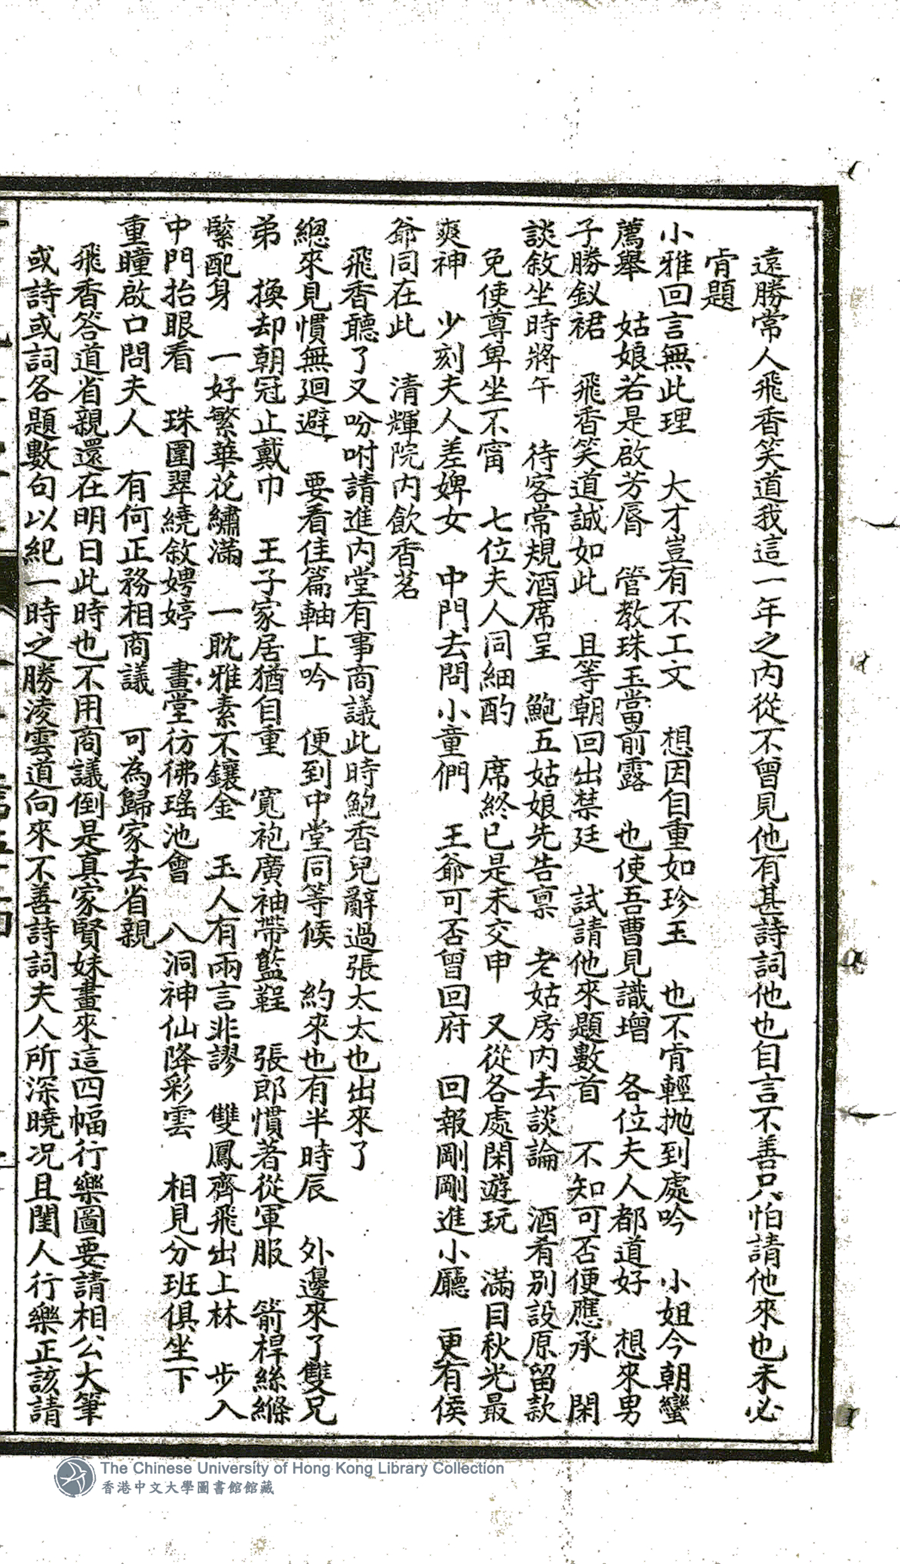 遠勝常人飛香笑道我這一年之內從不曾見他有甚詩詞他也自言不善只怕請他來也未必
肯題
小雅回言無此理　大才豈有不工文　想因自重如珍玉　也不肯輕拋到處吟　小姐今朝蠻
薦舉　姑娘若是啟芳唇　管教珠玉當前露　也使吾曹見識增　各位夫人都道好　想來男
子勝釵裙　飛香笑道誠如此　且等朝回出禁廷　試請他來題數首　不知可否便應承　閑
談敘坐時將午　待客常規酒席呈　鮑五姑娘先告稟　老姑房內去談論　酒肴別設原留款
免使尊卑坐不甯　七位夫人同細酌　席終已是未交申　又從各處閑遊玩　滿目秋光最
爽神　少刻夫人差婢女　中門去問小童們　王爺可否曾回府　回報剛剛進小廳　更有侯
爺同在此　清輝院內飲香茗
飛香聽了又吩咐請進內堂有事商議此時鮑香兒辭過張太太也出來了
總來見慣無迴避　要看佳篇軸上吟　便到中堂同等候　約來也有半時辰　外邊來了雙兄
弟　換却朝冠止戴巾　王子家居猶自重　寬袍廣袖帶藍鞓　張郎慣著從軍服　箭桿絲縧
緊配身　一好繁華花繡滿　一耽雅素不鑲金　玉人有兩言非謬　雙鳳齊飛出上林　步入
中門抬眼看　珠圍翠繞敘娉婷　畫堂彷彿瑤池會　八洞神仙降彩雲　相見分班俱坐下
重瞳啟口問夫人　有何正務相商議　可為歸家去省親
飛香答道省親還在明日此時也不用商議倒是真家賢妹畫來這四幅行樂圖要請相公大筆
或詩或詞各題數句以紀一時之勝淩雲道向來不善詩詞夫人所深曉況且閨人行樂正該請
The Chinese University of Hong Kong Library Collection
香港中文大學圖書館館藏